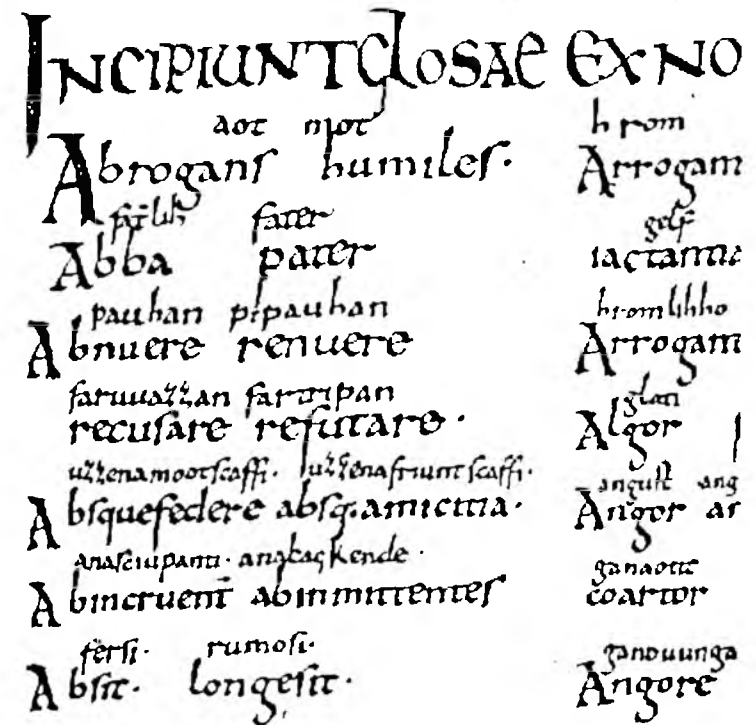 INCIPIUNT CLOSAE EX NO
aot mot
Abrogans humiles.
fat lih fater
Abba pater
pauhan pipauhan
Abnuere renuere
faruuazzan fartripan
recusare refutare.
uzzenamootscaffi. uzzenafriuntscaffi.
Absquefedere absq. amicitia.
anasciupanti. anapackende.
Abincruent abinmittentes
fersi. rumosi.
Absit. longesit.
hrom
Arrogam
gelf
iactantia
hromlihho
Arrogam
Algor
angust ang
Angor an
ganaotit
coartor
ganduunga
Angore